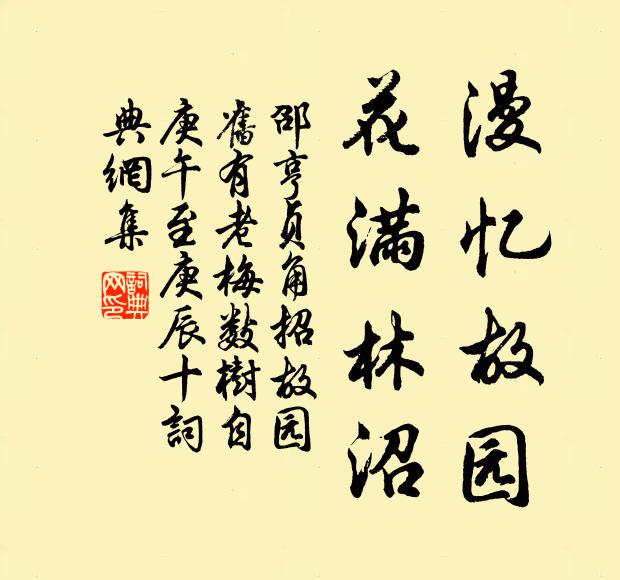 漫忆故园
花满林沼
邵亨贞角招故园
舊有老梅数樹自
庚午至庚辰十詞
典網集
詞典
网印